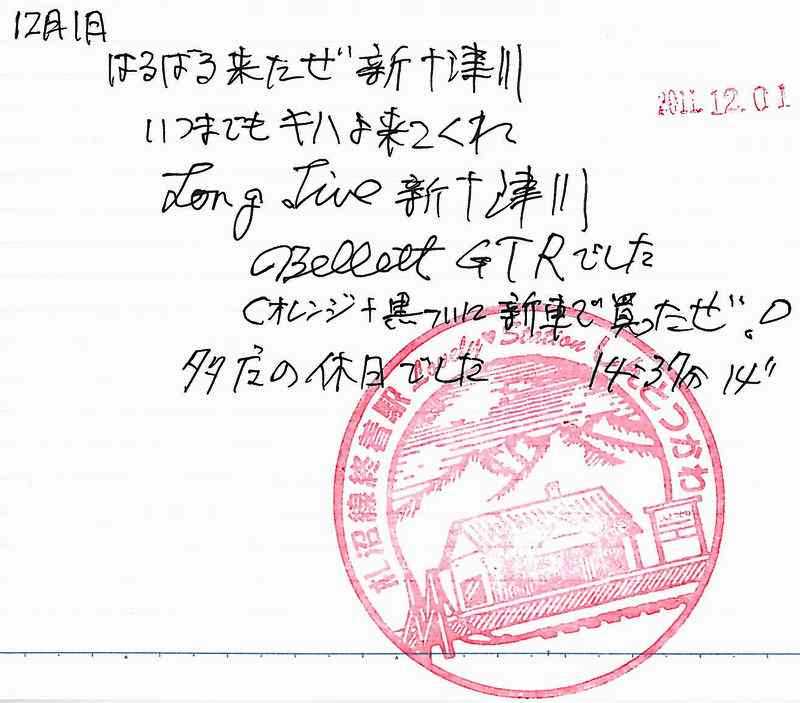 12月1日
2011.12.01
はるばる来たぜ新十津川
いつまでもキハよ来てくれ
Long Live 新十津川
Bellett GTRでした
(オレンジ+黒ついに新車で買ったぜ。)
多忙の休日でした 14時37分14"
札沼線終着駅 Lovely♥Station しんとつかわ